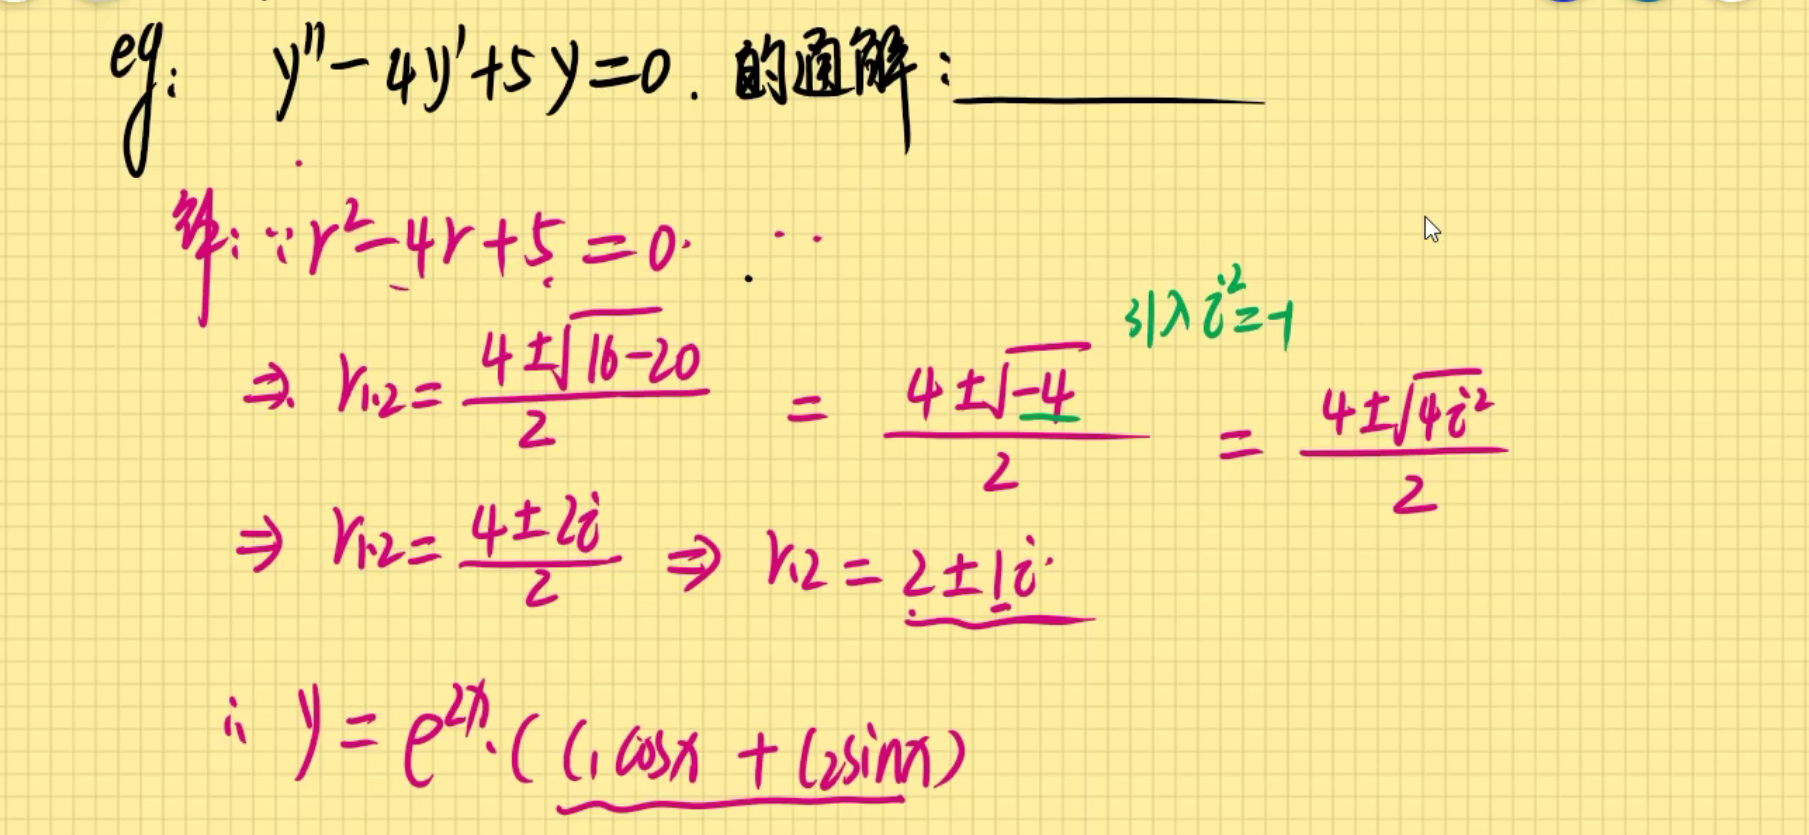 eg: y''-4y'+5y=0. 的通解:________
解: ∵ r²-4r+5=0
引入 i²=-1
⇒ r₁,₂ = (4±√(16-20))/2 = (4±√(-4))/2 = (4±√(4i²))/2
⇒ r₁,₂ = (4±2i)/2 ⇒ r₁,₂ = 2±1i
∴ y = e^(2x)·(C₁cosx + C₂sinx)